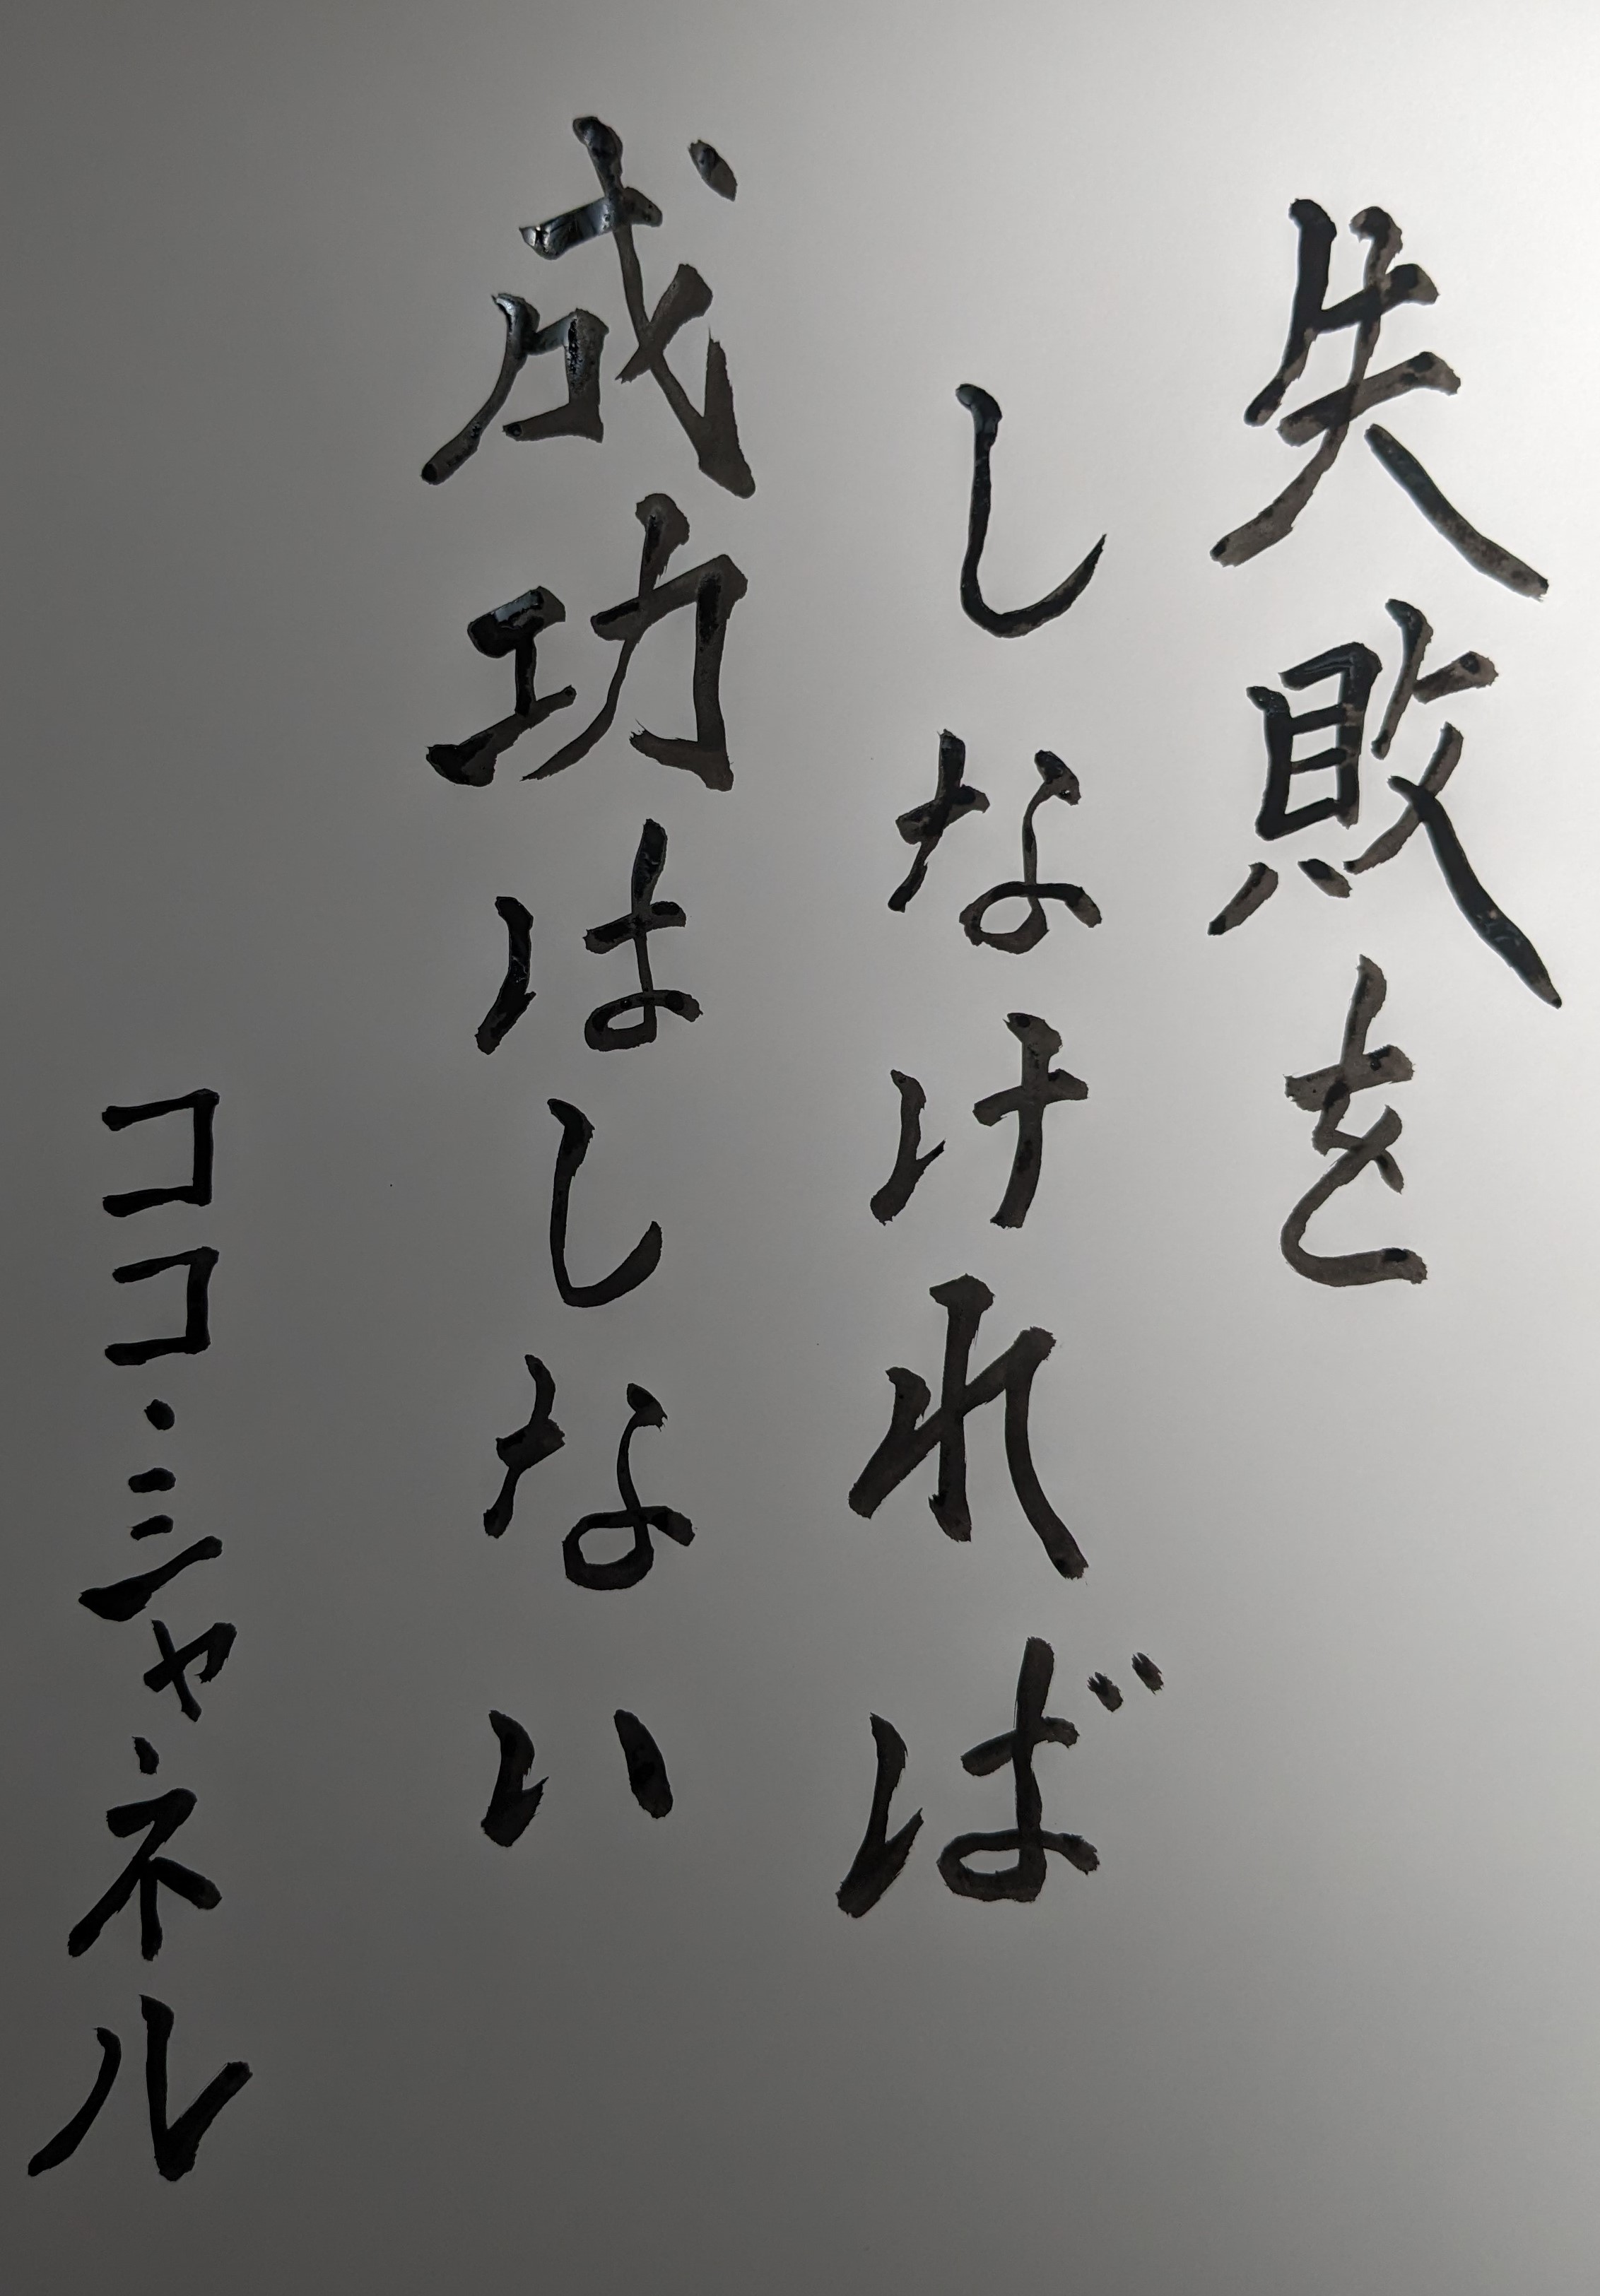 失敗を
しなければ
成功はしない
ココ・シャネル